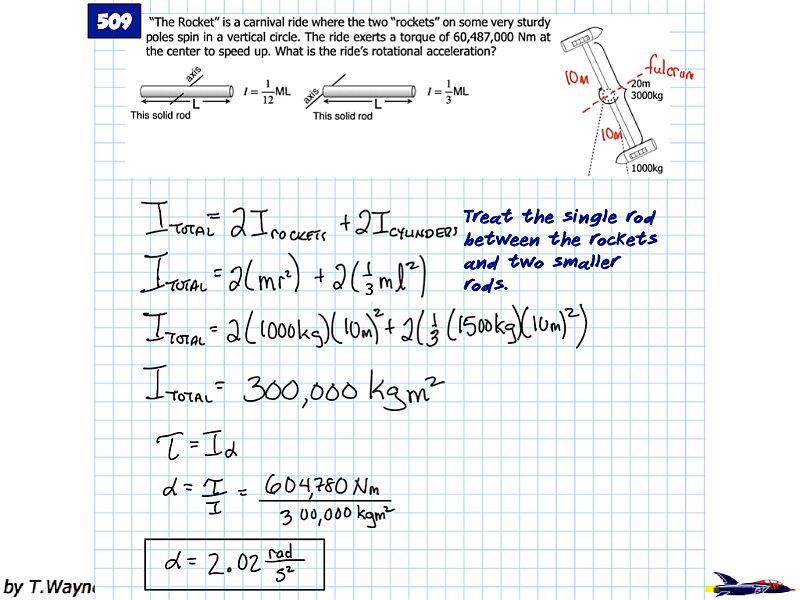 509
"The Rocket" is a carnival ride where the two "rockets" on some very sturdy
poles spin in a vertical circle. The ride exerts a torque of 60,487,000 Nm at
the center to speed up. What is the ride's rotational acceleration?
axis
L
I = 1/12 ML
This solid rod
axis
L
I = 1/3 ML
This solid rod
10m
fulcrum
20m
3000kg
10m
1000kg
I TOTAL = 2 I ROCKETS + 2 I CYLINDERS
Treat the single rod
between the rockets
and two smaller
rods.
I TOTAL = 2(mr²) + 2(1/3 ml²)
I TOTAL = 2(1000kg)(10m)² + 2(1/3 (1500kg)(10m)²)
I TOTAL = 300,000 kgm²
τ = Iα
α = τ/I = 604,780 Nm / 300,000 kgm²
α = 2.02 rad/s²
by T.Wayne